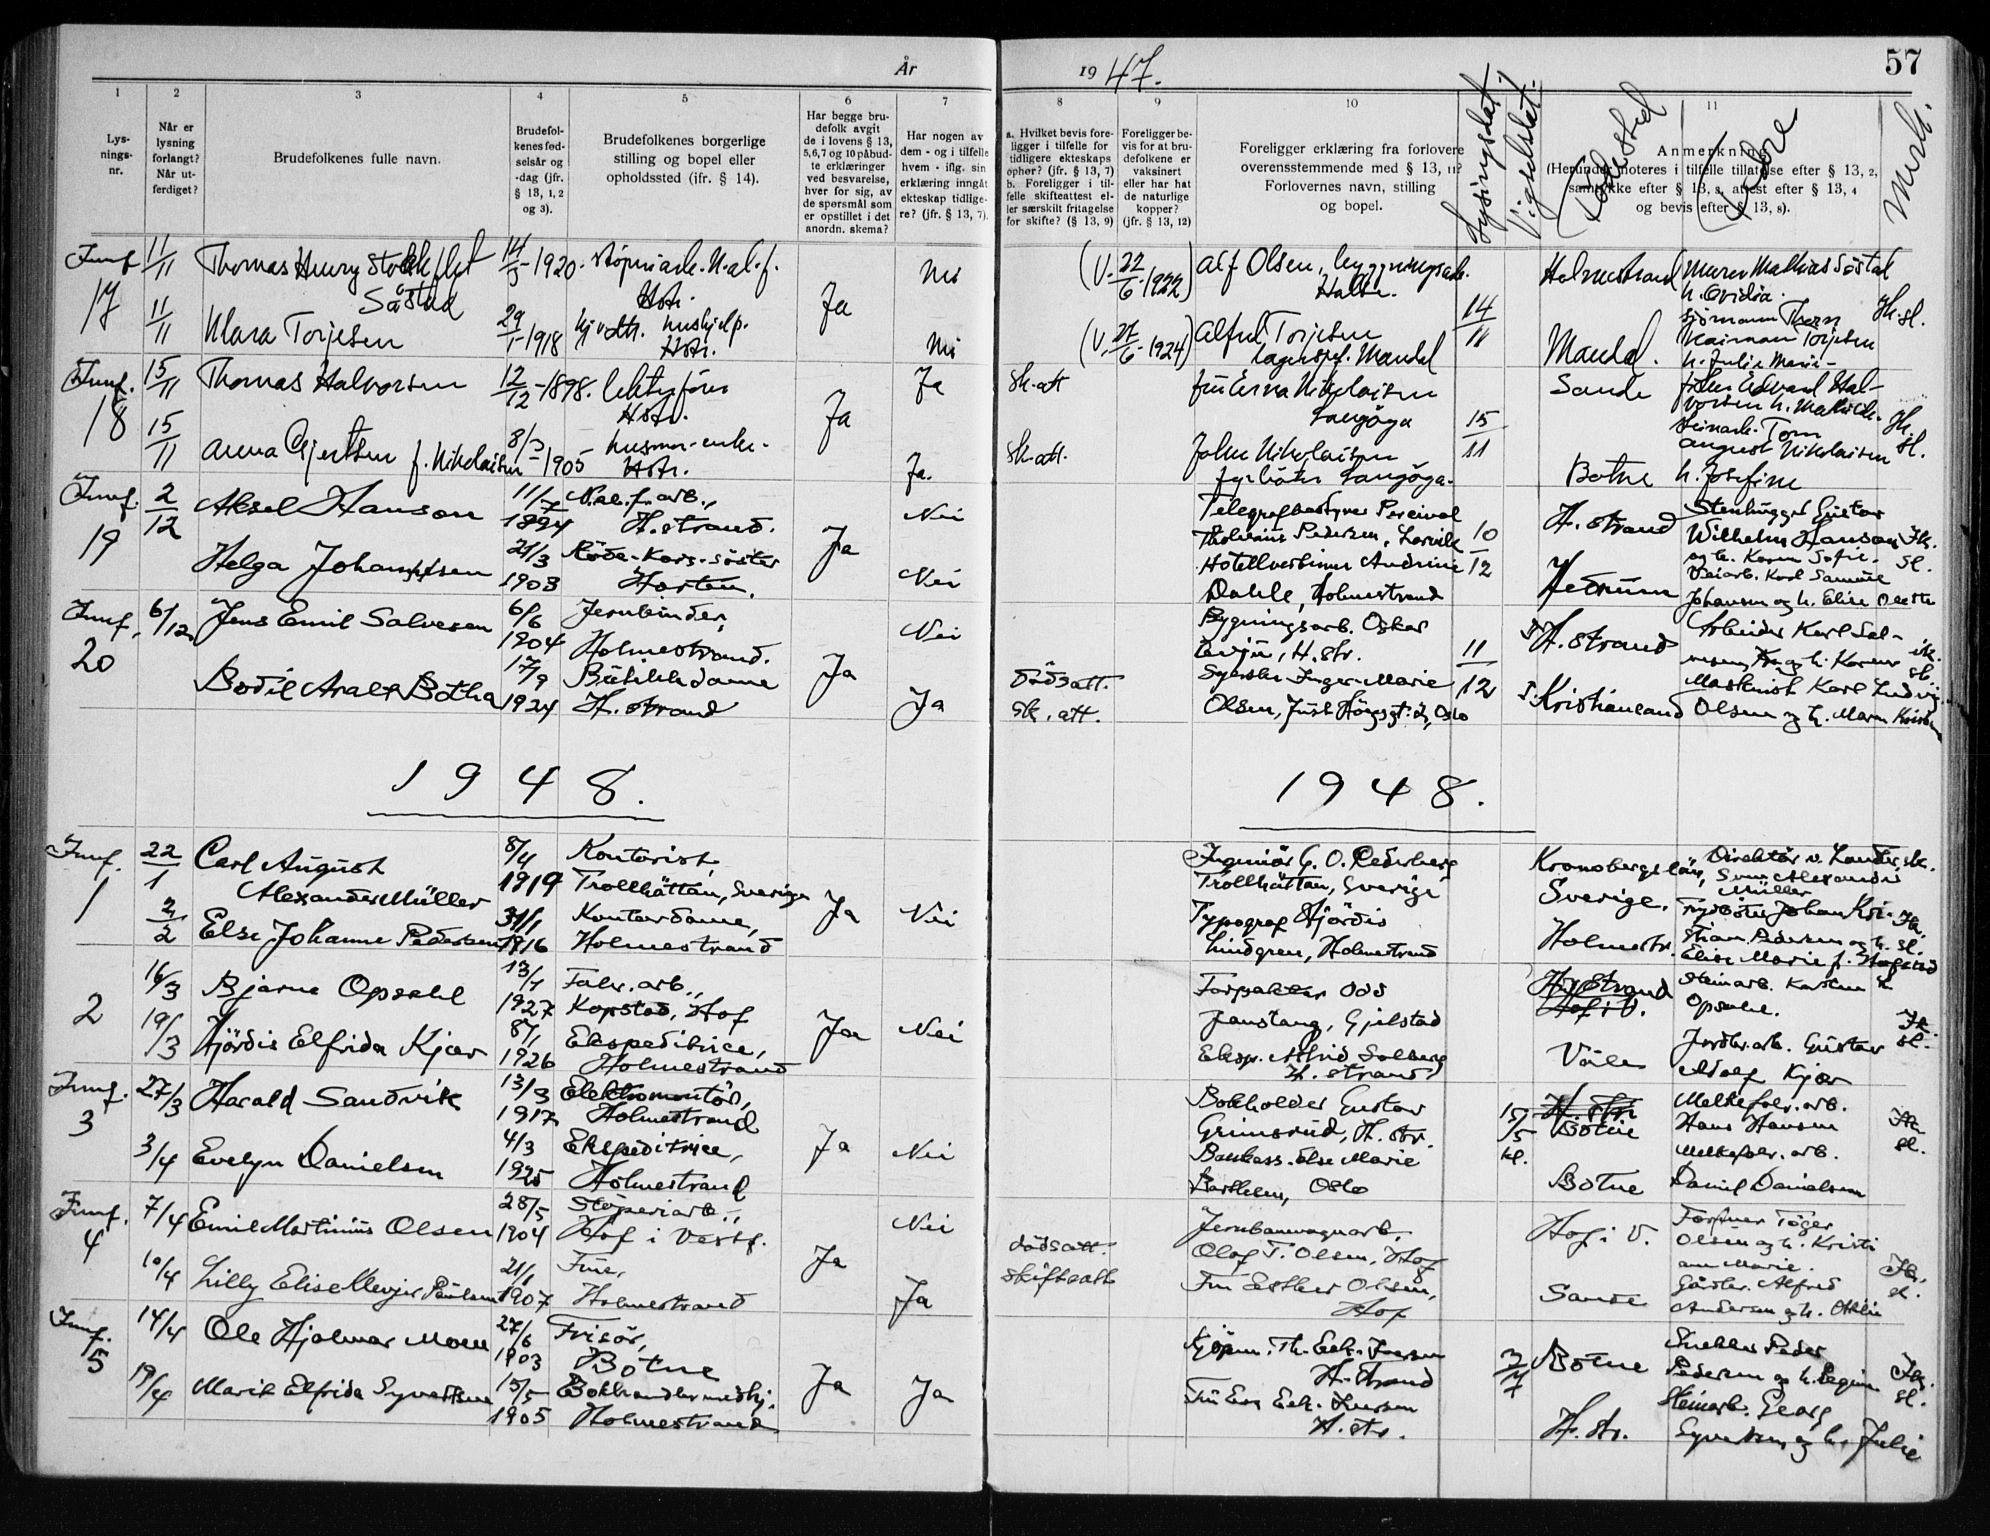 År 1947.
57
1 2 3 4 5 6 7 8 9 10 11
Lys-
nings-
nr.
Når er
lysning
forlangt?
Når ut-
ferdiget?
Brudefolkenes fulle navn.
Brudefol-
kenes fød-
selsår og
-dag (jfr.
§ 13, 1, 2
og 3).
Brudefolkenes borgerlige
stilling og bopel eller
opholdssted (ifr. § 14).
Har begge bru-
defolk avgit
de i lovens § 13,
5,6,7 og 10 påbud-
te erklæringer
ved besvarelse,
hver for sig, av
de spørsmål som
er opstillet i det
anordn. skema?
Har nogen av
dem - og i tilfelle
hvem - iflg. sin
erklæring inngått
ekteskap tidlige-
re? (jfr. § 13, 7).
a. Hvilket bevis fore-
ligger i tilfelle for
tidligere ekteskaps
ophør? (jfr. § 13, 7)
b. Foreligger i til-
felle skifteattest el-
ler særskilt fritagelse
for skifte? (§ 13, 9)
Foreligger be-
vis for at bru-
defolkene er
vaksinert
eller har hat
de naturlige
kopper?
(jfr. § 13, 12)
Foreligger erklæring fra forlovere
overensstemmende med § 13, 11?
Forlovernes navn, stilling
og bopel.
Lysingsdat.
Vigselsdat.
Fødested
Anmerkning
(Herunder noteres i tilfelle tillatelse efter § 13, 2,
samtykke efter § 13, 3, attest efter § 13, 4
og bevis efter § 13, 8).
Merk.
17 11/11 Thomas Henry Stokkflet
Såstad
14/5-1920. støperiarb. N.al.f.
Hstr.
Ja Nei
(V. 22/6-1922) Alf Olsen, bygningsarb.
Holmestrand Murer Mathias Såstad
h. Ovidia.
11/11 Klara Torjesen 29/1-1918 hjv. dtr. hushjelp.
Hstr. Nei
(V. 27/6-1924) Alfred Torjesen
Lagerexp. Mandal
14/11 Mandal. sjømann Thom
Torjesen
h. Julie Marie
18 15/11 Thomas Halvorsen 12/12-1898.
Hstr. Ja Ja sk-att
fru Erna Nikolaisen
Langøya 15/11
Sande Edvard Hal-
vorsen h. Mathilde.
15/11 Anna Gjertsen f. Nikolaisen 8/3-1905 husmor-enke.
Hstr. Ja. sk-att.
John Nikolaisen
fyrbøter Langøya.
Botne August Nikolaisen
h. Josefine
19 2/12 Aksel Hanson 11/7 1894 N.al.f. arb.,
H.strand. Ja Nei
Telegrafbestyrer Percival
Tholvinus Pedersen, Larvik 10/12
H. strand Stenhugger Gustav
Wilhelm Hanson
og h. Karen Sofie.
Helga Johannsen 21/3 1903 Røde-Kors-søster
Horten. Nei
Hotellvertinne Andrine
Dahle, Holmestrand
Hedrum Veiarb. Karl Samuel
Johansen og h. Elise Oleste
20 6/12 Jens Emil Salvesen 6/6 1904 Jernbinder,
Holmestrand. Ja Nei
Bygningsarb. Oskar
Evju, H.str. 11/12
H. strand Arbeider Karl Sal-
vesen og h. Karen
Bodil Aralt Botha 17/9 1924 Butikkdame
H. strand Ja
Dødsatt.
sk. att.
Syerske Inger-Marie
Olsen, Oslo
Kristiansand Maskinist Karl Ludvig
Olsen og h. Maren
1948. 1948.
1 22/1 Carl August
Alexander Müller
8/4 1919 Kontorist,
Trollhättan, Sverige Ja Nei
Ingeniør G. O. Cederberg
Trollhättan, Sverige
Kronobergs län,
Sverige. Direktør
Sven Alexander
Müller
2/2 Else Johanne Pedersen 31/1 1916 Kontordame,
Holmestrand
Typograf Hjördis
Lindgren, Holmestrand
Holmestr. Fyrbøter Johan Kri-
stian Pedersen og h.
Elise Marie f.
2 16/3 Bjarne Opsahl 13/4 1927 Fabr. arb.,
Kopstad, Hof Ja Nei
Forpakter Odd
Janstang, Gjelstad
H.strand
Hof i V. Steinarb. Karsten
Opsahl.
19/3 Hjördis Elfrida Kjær 8/1 1926 Ekspeditrice,
Holmestrand
Eksp. Astrid Solberg
H. strand
Våle Jordbr.arb. Gustav
Adolf Kjær
3 27/3 Harald Sandvik 13/3 1917 Elektromontør,
Holmestrand Ja Nei
Bokholder Gustav
Grimsrud, H. str.
15/5 kl. H. str
Botne Melkefabr. arb.
Hans Hansen
3/4 Evelyn Danielsen 4/3 1925 Ekspeditrice,
Holmestrand
Bankass. Else Marie
Barthelm, Oslo
Botne Melkefabr. arb.
Daniel Danielsen
4 7/4 Emil Martinius Olsen 28/5 1904 Støperiarb.,
Hof i Vestf. Ja Nei
dødsatt.
skifteatt
Jernbanevognarb.
Olaf T. Olsen, Hof
Hof i V. Tøger
Olsen og h. Kristi
ane Marie.
10/4 Lilly Elise Klevjer Paulsen 21/1 1907 Frue,
Holmestrand Ja
Fru Esther Olsen,
Hof
Sande Gårdbr. Alfred
Andersen og h. Othilie
5 14/4 Ole Hjalmar Moen 27/6 1903 Frisør,
Botne Ja
Kjøpm. Th. Eek-Iversen
H. strand
3/7 Botne Snekker Peder
Pedersen og h. Regine
19/4 Marie Elfrida Syvertsen 15/5 1905 Bokhandlermedhj.
Holmestrand Ja
Fru Eva Eek-Iversen
H. str.
H. str. Steinarb. Georg
Syvertsen og h. Julie